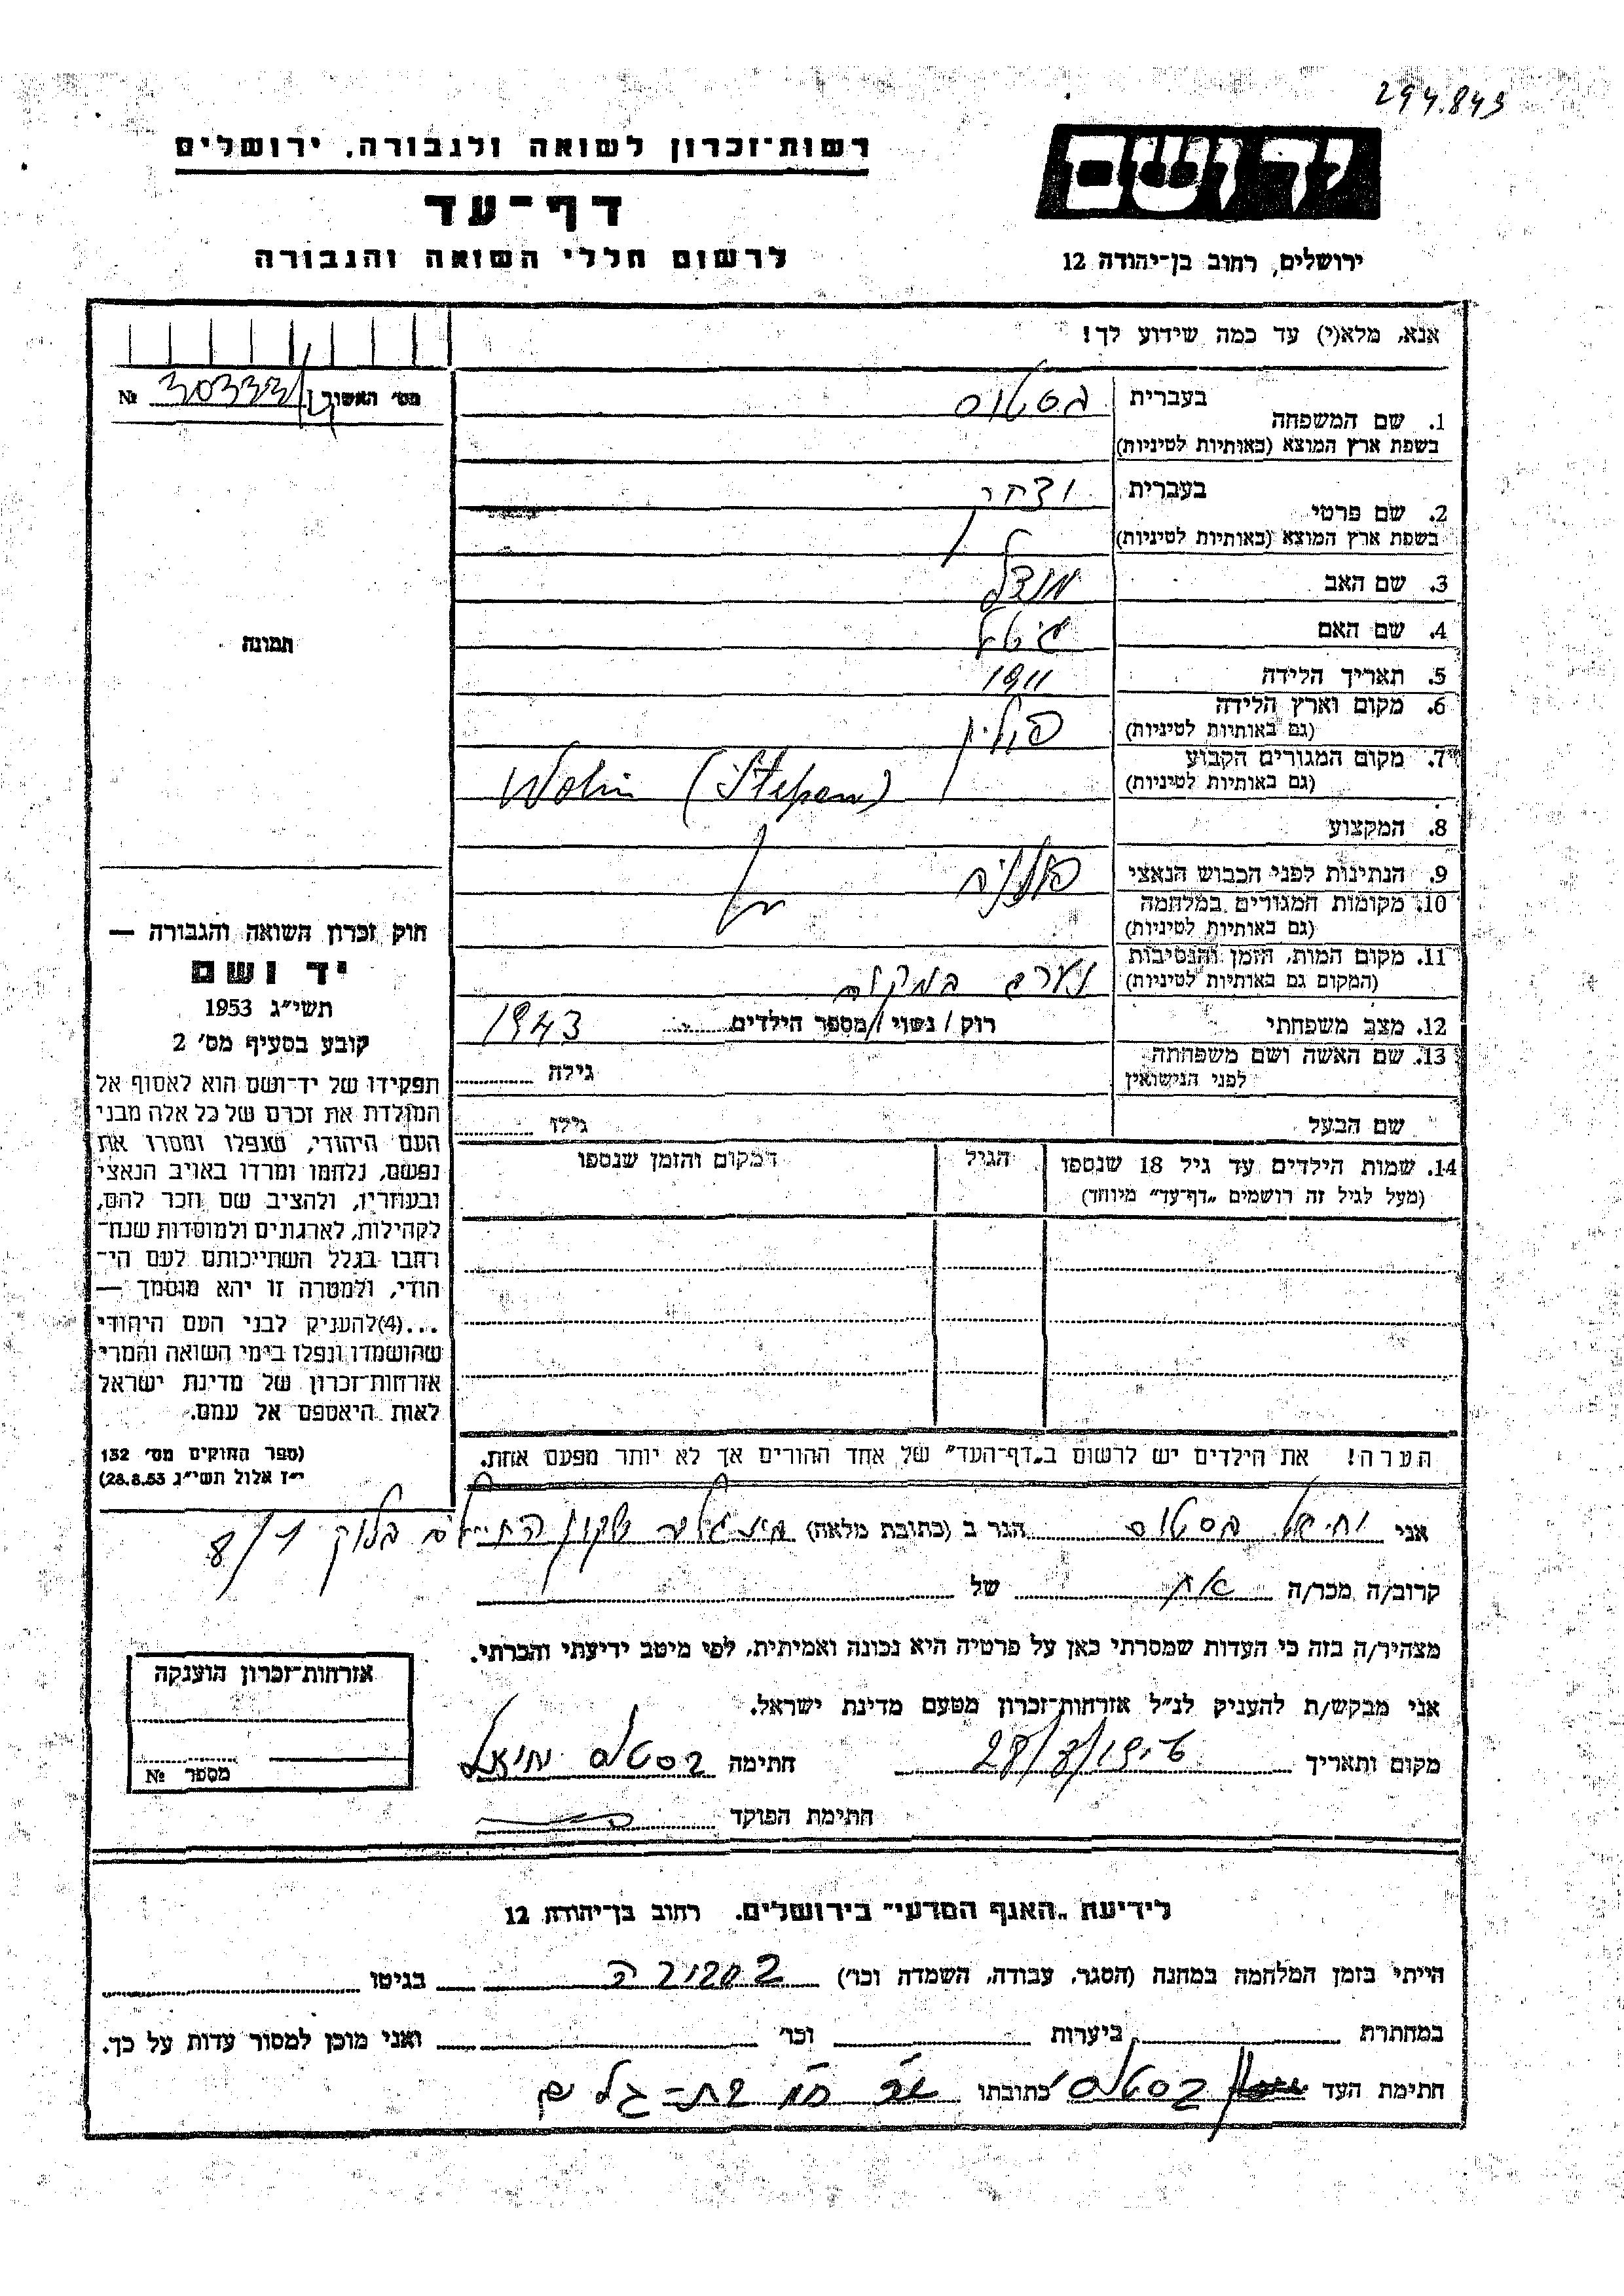 294.843
רשות־זכרון לשואה ולגבורה, ירושלים
דף־עד
לרשום חללי השואה והגבורה
ידושם
ירושלים, רחוב בן־יהודה 12
אנא, מלא(י) עד כמה שידוע לך!
מס׳ האשור 30333 №
1. שם המשפחה בעברית
בשפת ארץ המוצא (באותיות לטיניות)
2. שם פרטי בעברית
בשפת ארץ המוצא (באותיות לטיניות)
3. שם האב
4. שם האם
5. תאריך הלידה 1911
6. מקום וארץ הלידה פולין
(גם באותיות לטיניות)
7. מקום המגורים הקבוע
(גם באותיות לטיניות) Wolin (Stepan)
8. המקצוע
9. הנתינות לפני הכבוש הנאצי פולניה
10. מקומות המגורים במלחמה
(גם באותיות לטיניות)
11. מקום המות, הזמן והנסיבות
(המקום גם באותיות לטיניות) נהרג במקום
12. מצב משפחתי רוק / נשוי / מספר הילדים 1943
13. שם האשה ושם משפחתה
לפני הנישואין גילה
שם הבעל גילו
14. שמות הילדים עד גיל 18 שנספו הגיל המקום והזמן שנספו
(מעל לגיל זה רושמים „דף־עד״ מיוחד)
הערה! את הילדים יש לרשום ב„דף־העד״ של אחד ההורים אך לא יותר מפעם אחת.
תמונה
חוק זכרון השואה והגבורה —
יד ושם
תשי״ג 1953
קובע בסעיף מס׳ 2
תפקידו של יד־ושם הוא לאסוף אל
המולדת את זכרם של כל אלה מבני
העם היהודי, שנפלו ומסרו את
נפשם, נלחמו ומרדו באויב הנאצי
ובעוזריו, ולהציב שם וזכר להם,
לקהילות, לארגונים ולמוסדות שנח־
רחבו בגלל השתייכותם לעם הי־
הודי, ולמטרה זו יהא מוסמך —
...(4)להעניק לבני העם היהודי
שהושמדו ונפלו בימי השואה והמרי
אזרחות־זכרון של מדינת ישראל
לאות היאספם אל עמם.
(ספר החוקים מס׳ 132
י״ז אלול תשי״ג 28.8.53)
אני הגר ב (כתובת מלאה) שכון החיילים בלוק 8/1
קרוב/ה מכר/ה אח של
מצהיר/ה בזה כי העדות שמסרתי כאן על פרטיה היא נכונה ואמיתית, לפי מיטב ידיעתי והכרתי.
אני מבקש/ת להעניק לנ״ל אזרחות־זכרון מטעם מדינת ישראל.
מקום ותאריך חתימה
חתימת הפוקד
אזרחות־זכרון הוענקה
מספר №
לידיעת „האגף המדעי״ בירושלים. רחוב בן־יהודה 12
הייתי בזמן המלחמה במחנה (הסגר, עבודה, השמדה וכו׳) בגיטו
במחתרת ביערות וכו׳ ואני מוכן למסור עדות על כך.
חתימת העד כתובתו בת־גלים